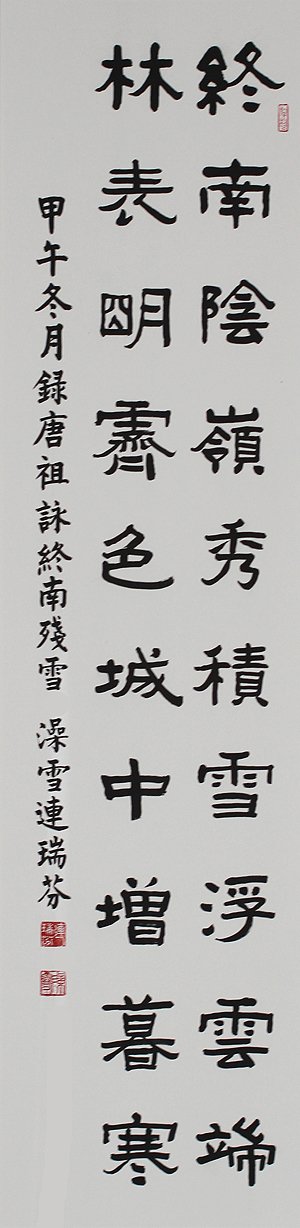 終南陰嶺秀積雪浮雲端
林表明霽色城中增暮寒
甲午冬月録唐祖詠終南殘雪 澡雪連瑞芬